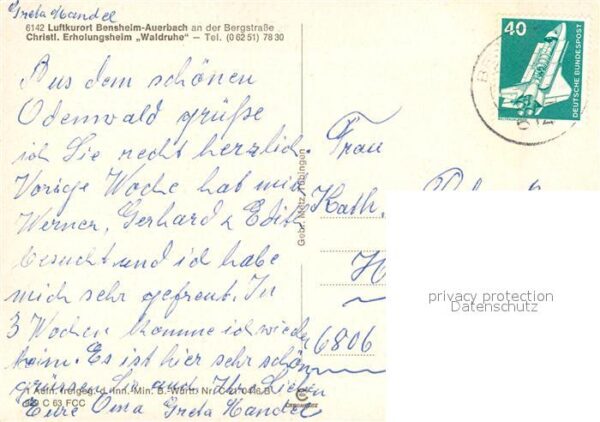 Greta Handel
6142 Luftkurort Bensheim-Auerbach an der Bergstraße
Christl. Erholungsheim „Waldruhe" – Tel. (0 62 51) 78 30
Aus dem schönen
Odenwald grüße
ich Sie recht herzlich.
Vorige Woche hat mich
Werner, Gerhard & Edith
besucht und ich habe
mich sehr gefreut. In
3 Wochen komme ich wieder
heim. Es ist hier sehr schön
grüssen Sie und Ihre Lieben
Eure Oma Greta Handel
Aufn. freigeg. d. Inn. Min. B.-Württ. Nr.
C 63 FCC
Gebr. Metz, Tübingen
40
DEUTSCHE BUNDESPOST
Frau
Kath.
6806
privacy protection
Datenschutz